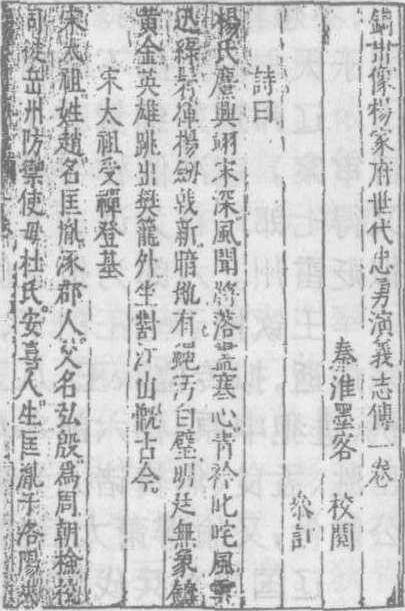 鐫出像楊家府世代忠勇演義志傳一卷
秦淮墨客 校閱
參訂
詩曰
楊氏麾興翊宋深風聞將落盡寒心青衿叱咤風雲
迅綠鬢揮揚劍戟新暗地有蠅汚白璧明廷無象鑄
黃金英雄跳出樊籠外坐對江山慨古今
宋太祖受禪登基
宋太祖姓趙名匡胤涿郡人父名弘殷為周朝檢校
司徒岳州防禦使母杜氏安喜人生匡胤于洛陽夾